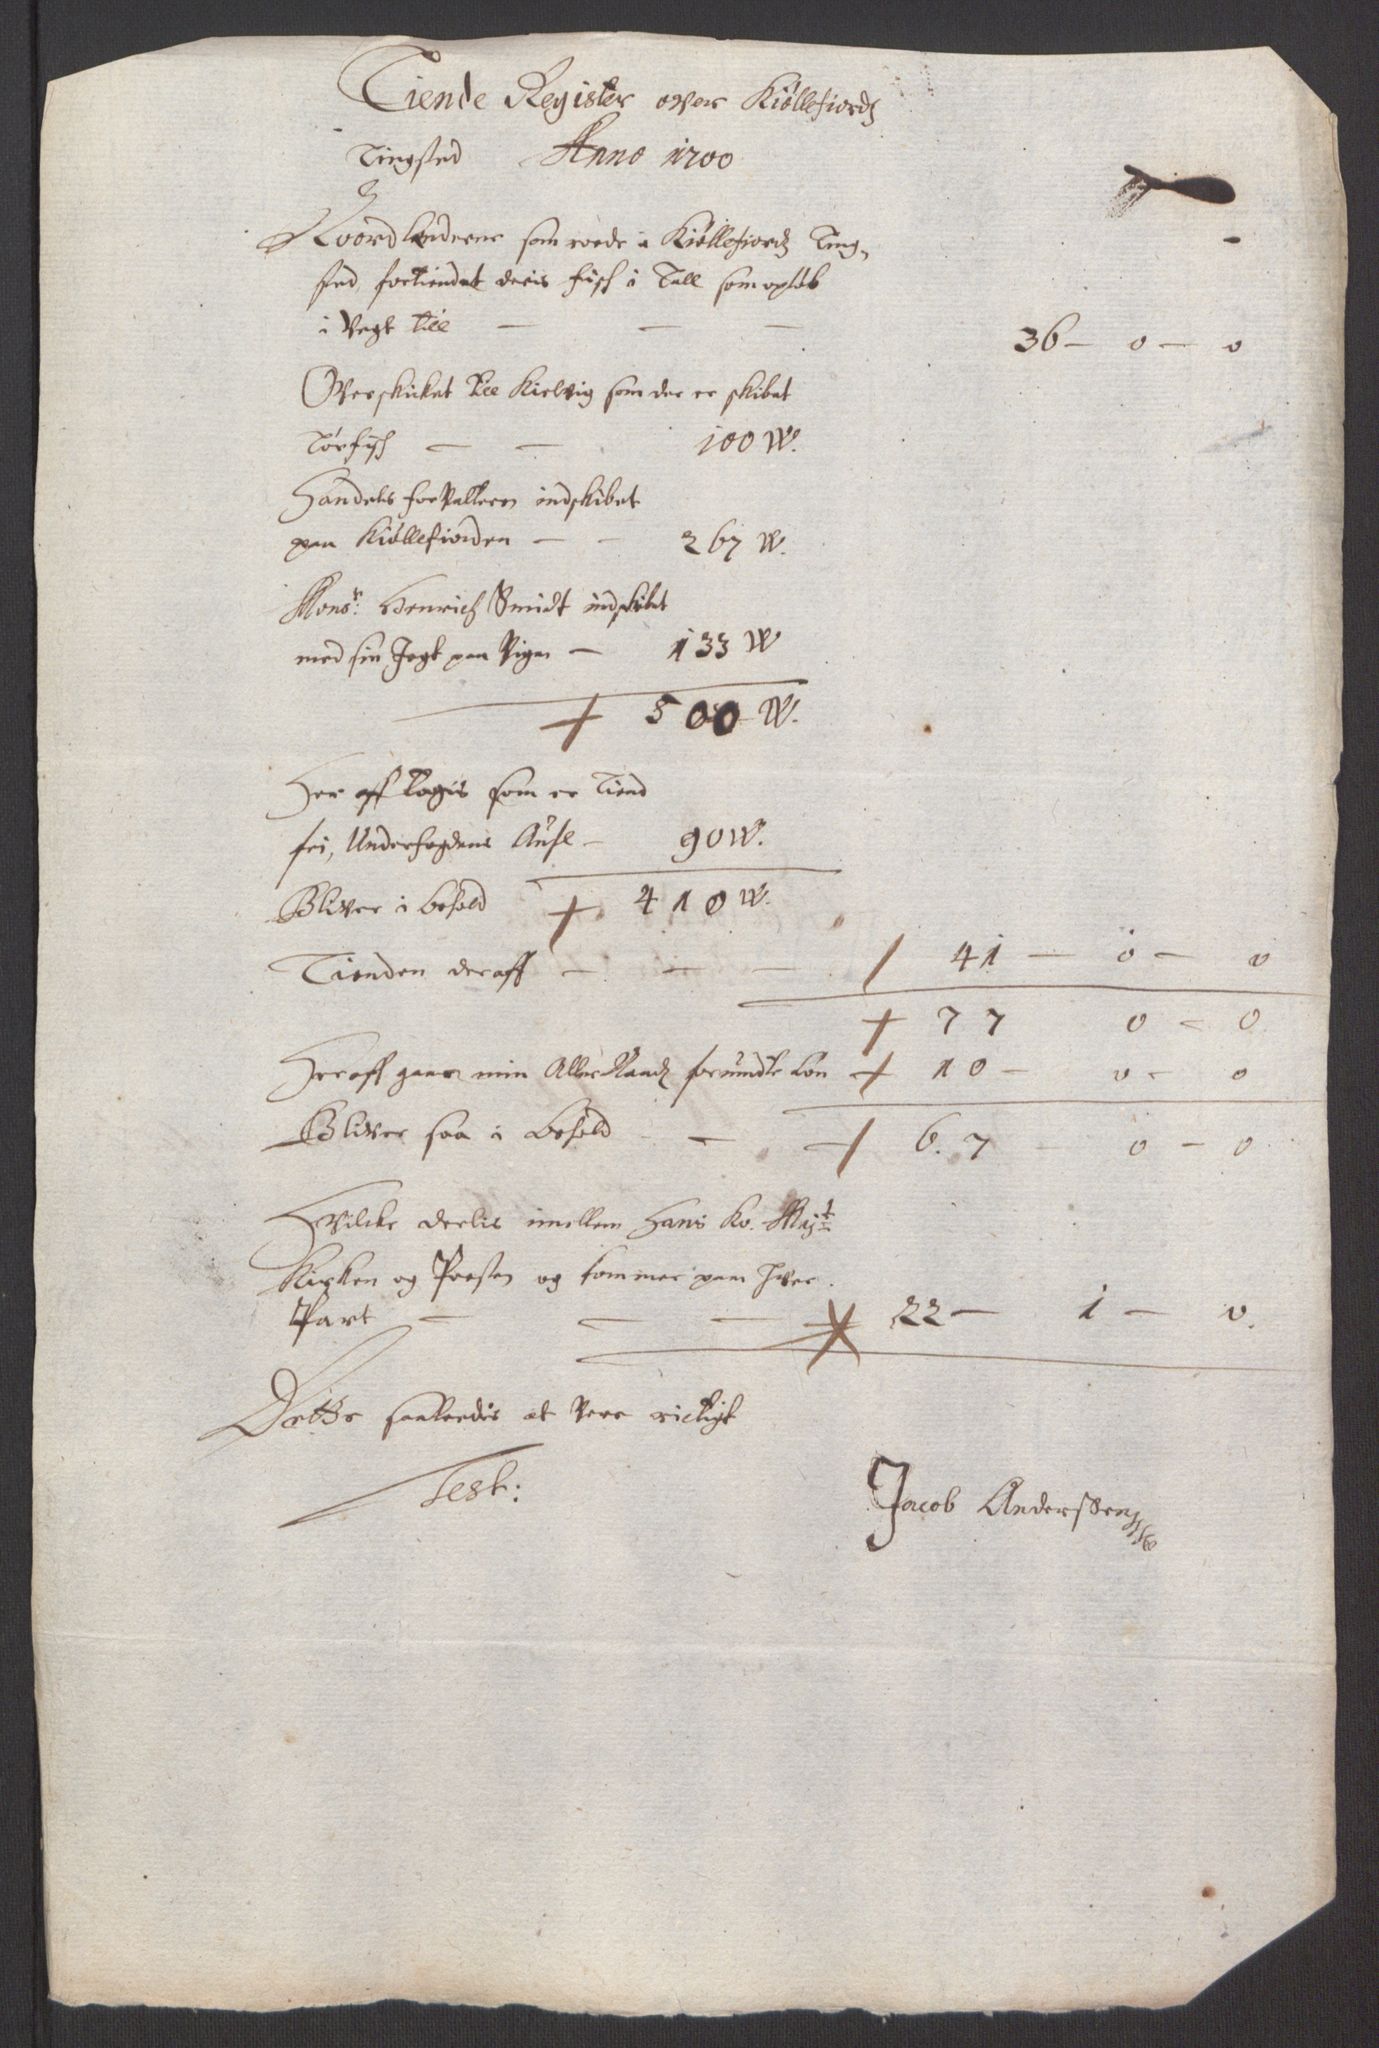 Tiende Register over Kiöllefiordz
Tingsted Anno 1700
Noordlenderne som roede i Kiöllefiordz Ting„
sted, fortiendet deris fisch i Tall som opløb
i Vegt till — — — 36 — 0 — 0
Overskicket till Kielvig som der er skibet
Tørfisch — — 100 W.
Handels forvalteren indskibet
paa Kiöllefiorden — — 267 W.
Monsr: Henrich Smidt indskibet
med sin Jegt paa Vigen — 133 W
+ 500 W.
Her aff tagis som er Tiend
fri, Underfogdens — 90 W.
Bliver i behold + 410 W.
Tienden deraff — — — / 41 — 0 — 0
+ 77 0 — 0
Her aff gaar min Aller Naadz forundte Løn + 10 — 0 — 0
Bliver saa i behold — — + 67 — 0 — 0
Hvilcke deelis imellem Hans Ko. Mayt:
Kirken og Presten og kommer paa hver
Part — — — 22 — 1 — 0.
Dette saaledis at vere rictigt
Test:
Jacob Anderssen